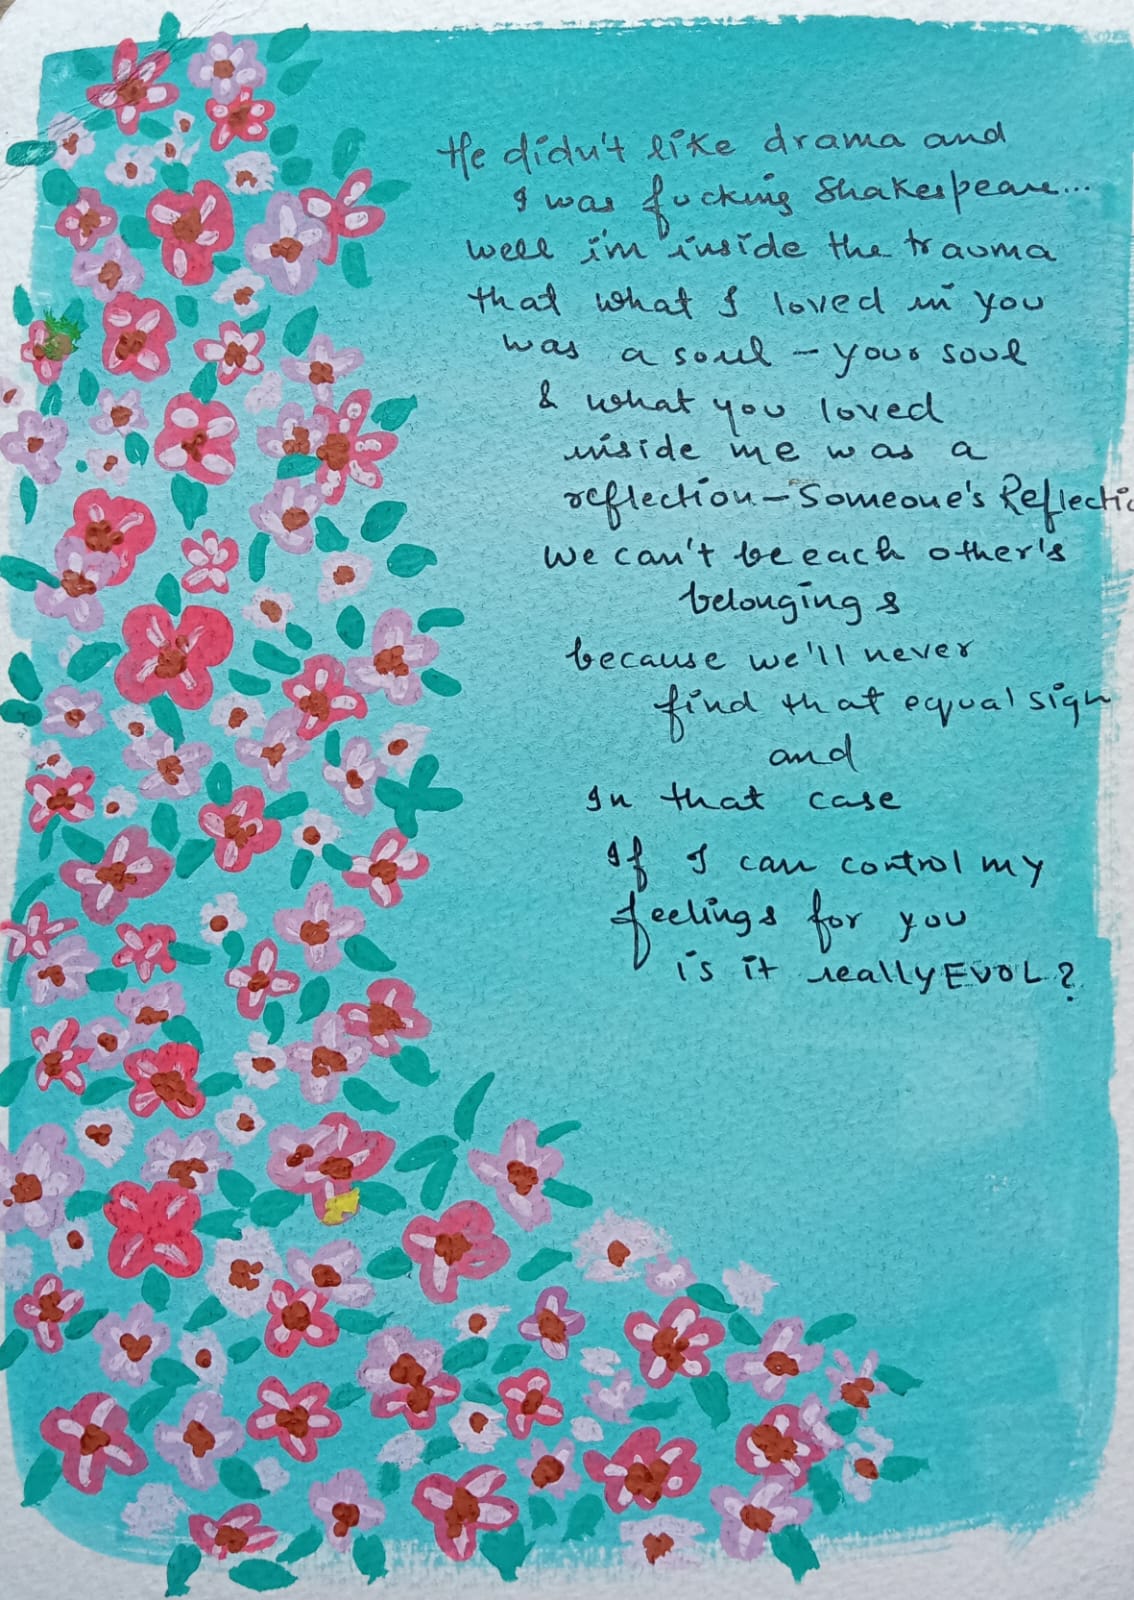 He didn't like drama and
I was fucking Shakespeare...
well i'm inside the trauma
that what I loved in you
was a soul – your soul
& what you loved
inside me was a
reflection – Someone's Reflectio
We can't be each other's
belongings
because we'll never
find that equal sign
and
In that case
If I can control my
feelings for you
is it really EVOL?